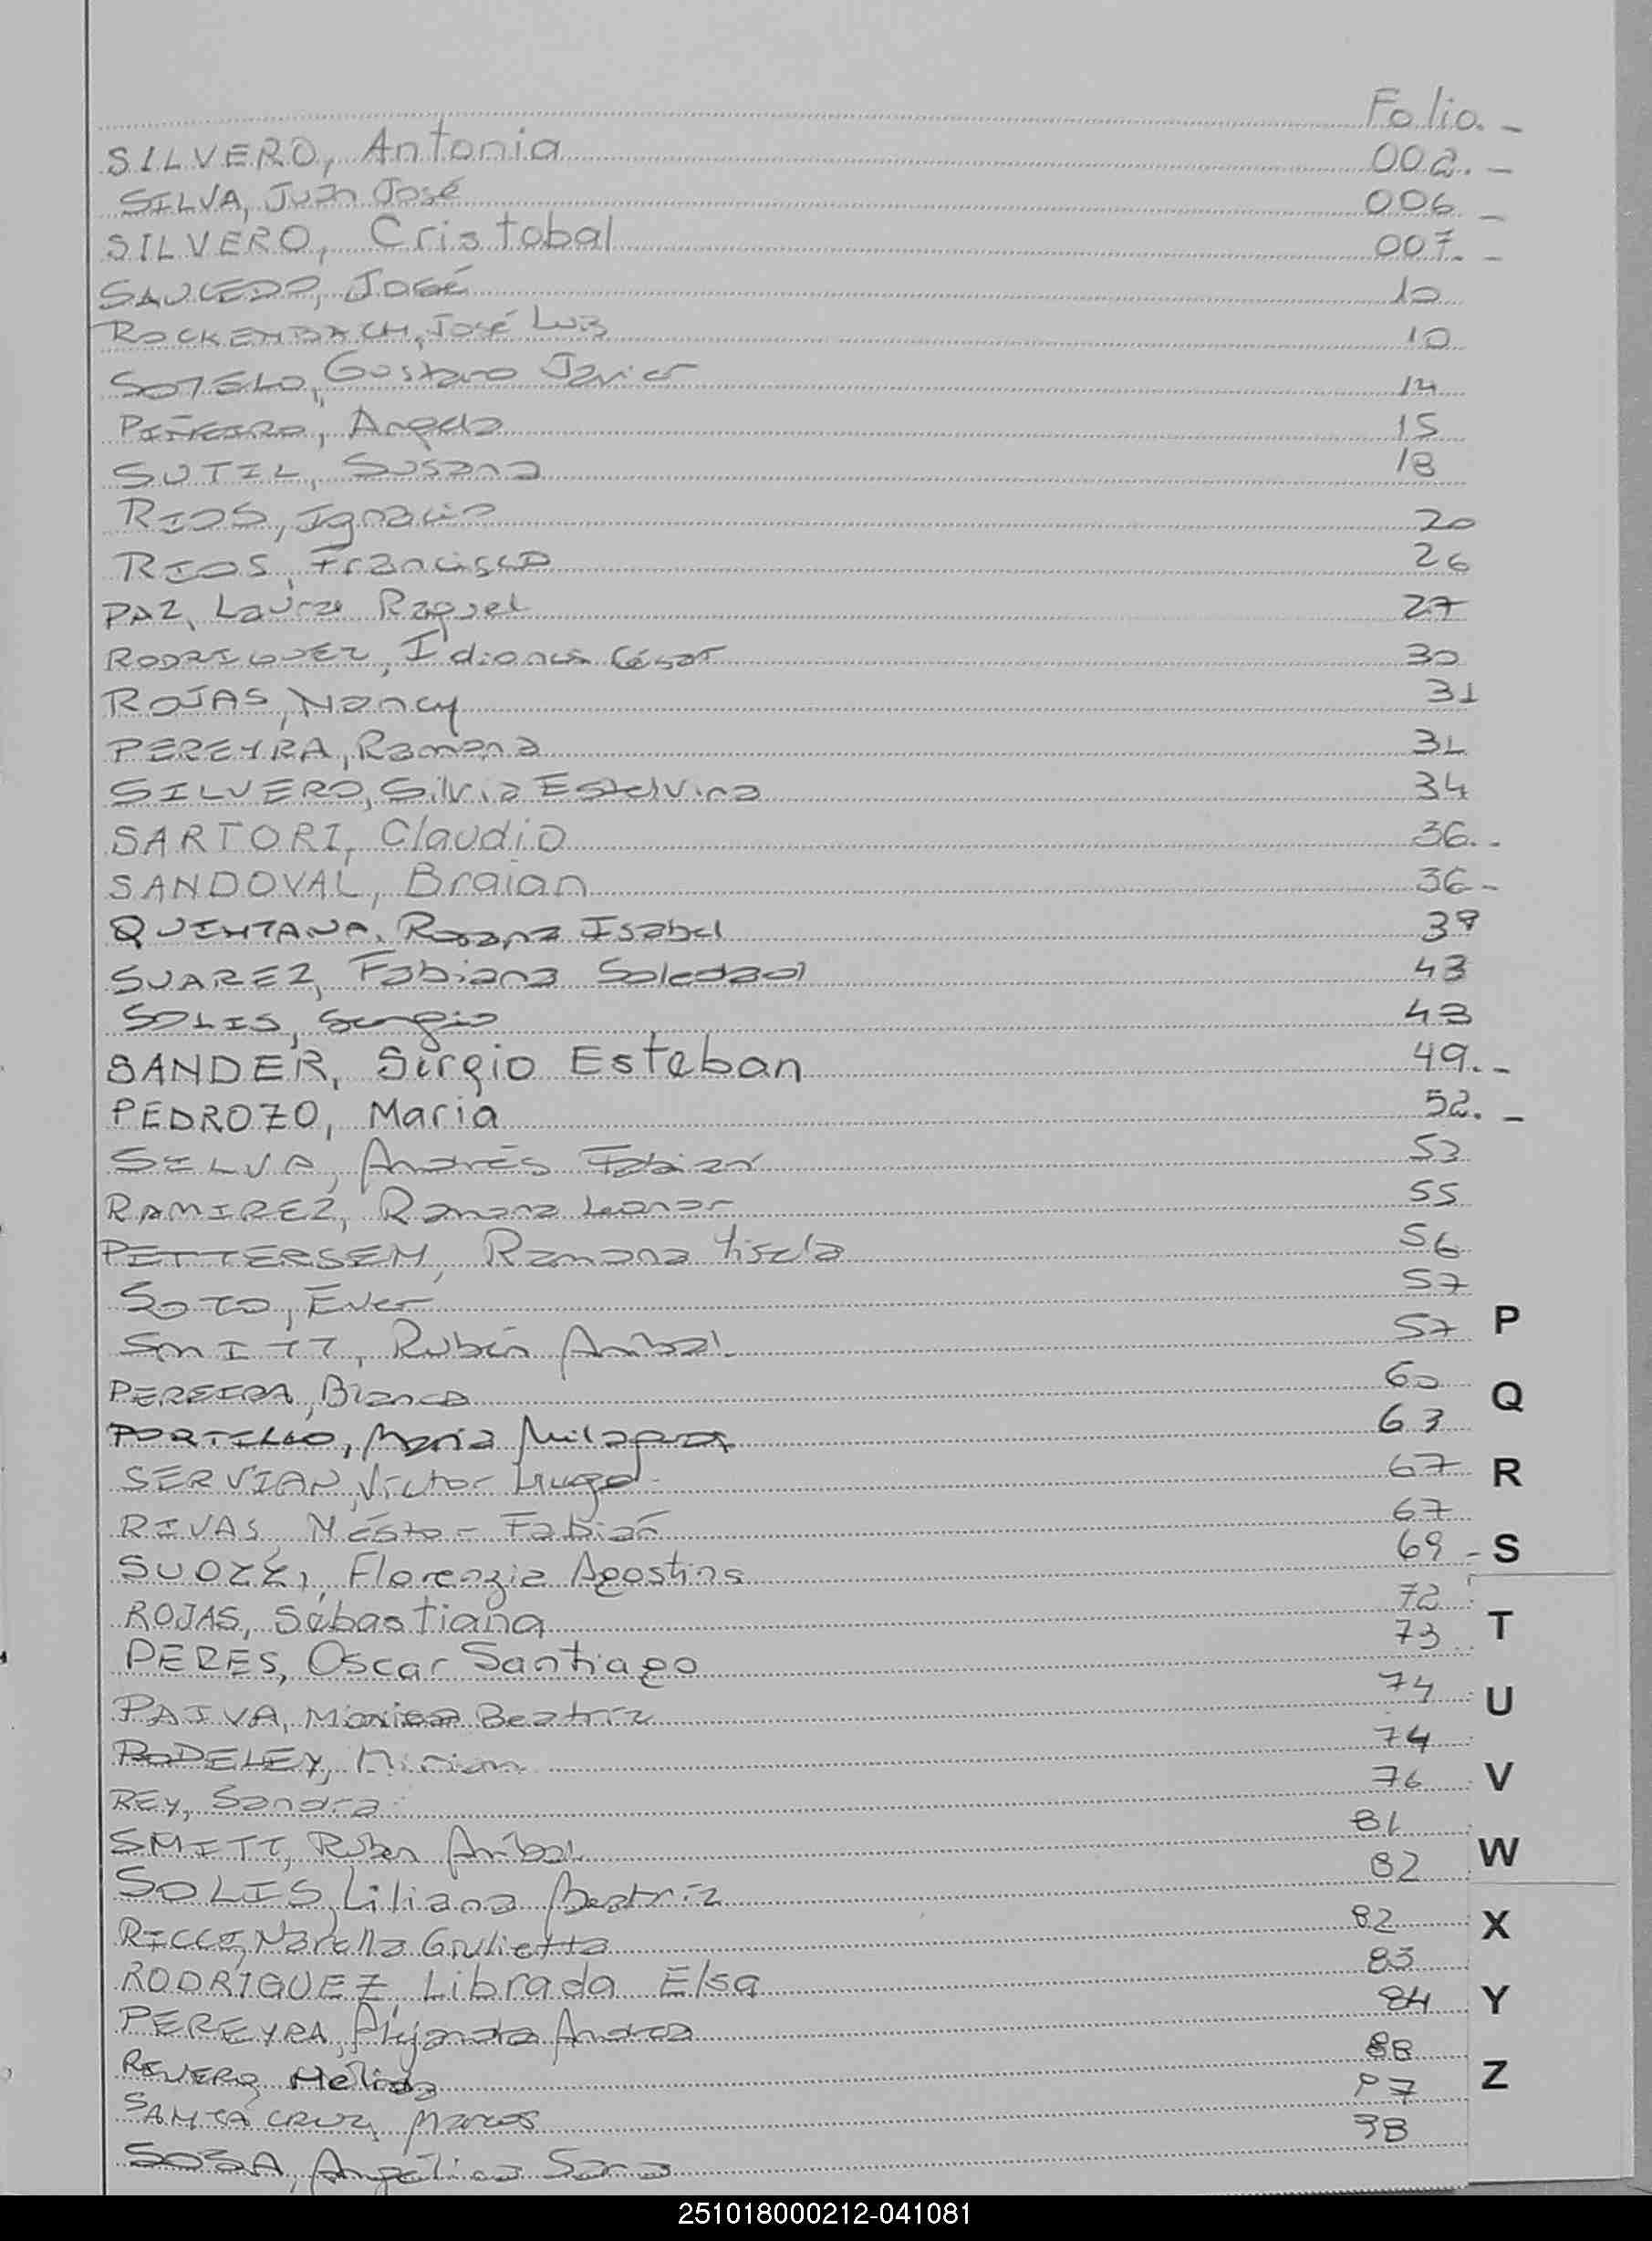 Folio.-
SILVERO, Antonia 002.-
SILVA, Juan José 006.-
SILVERO, Cristobal 007.-
SAUCEDO, José 10
ROCKEMBACH, José Luis 10
SOTELO, Gustavo Javier 14
PIÑEIRO, Angela 15
SUTIL, Susana 18
RIOS, Ignacio 20
RIOS, Francisco 26
PAZ, Laura Raquel 27
RODRIGUEZ, César 30
ROJAS, Nancy 31
PEREYRA, Ramona 32
SILVERO, Silvia Estelvina 34
SARTORI, Claudio 36.-
SANDOVAL, Braian 36-
QUINTANA, Rosana Isabel 39
SUAREZ, Fabiana Soledad 43
SOLIS, Sergio 43
SANDER, Sergio Esteban 49.-
PEDROZO, Maria 52.-
SILVA, Andrés Fabian 53
RAMIREZ, Ramona Leonor 55
PETTERSEM, Ramona 56
SOTO, Ever 57
SMITT, Rubén Anibal 57
PEREIRA, Blanca 60
PORTILLO, Maria Milagros 63
SERVIAN, Victor Hugo 67
RIVAS, Néstor Fabián 67
SUOZZI, Florenzia Agostina 69-
ROJAS, Sebastiana 72
PERES, Oscar Santiago 73
PAIVA, Mónica Beatriz 74
PODELEY, Miriam 74
REY, Sandra 76
SMITT, Ruben Anibal 81
SOLIS, Liliana Beatriz 82
RICCI, Narella Giulietta 82
RODRIGUEZ, Librada Elsa 83
PEREYRA, Alejandra Andrea 84
RIVERO, Melisa 88
SANTA CRUZ, Marcos 97
SOSA, Angélica Sara 98
P
Q
R
S
T
U
V
W
X
Y
Z
251018000212-041081